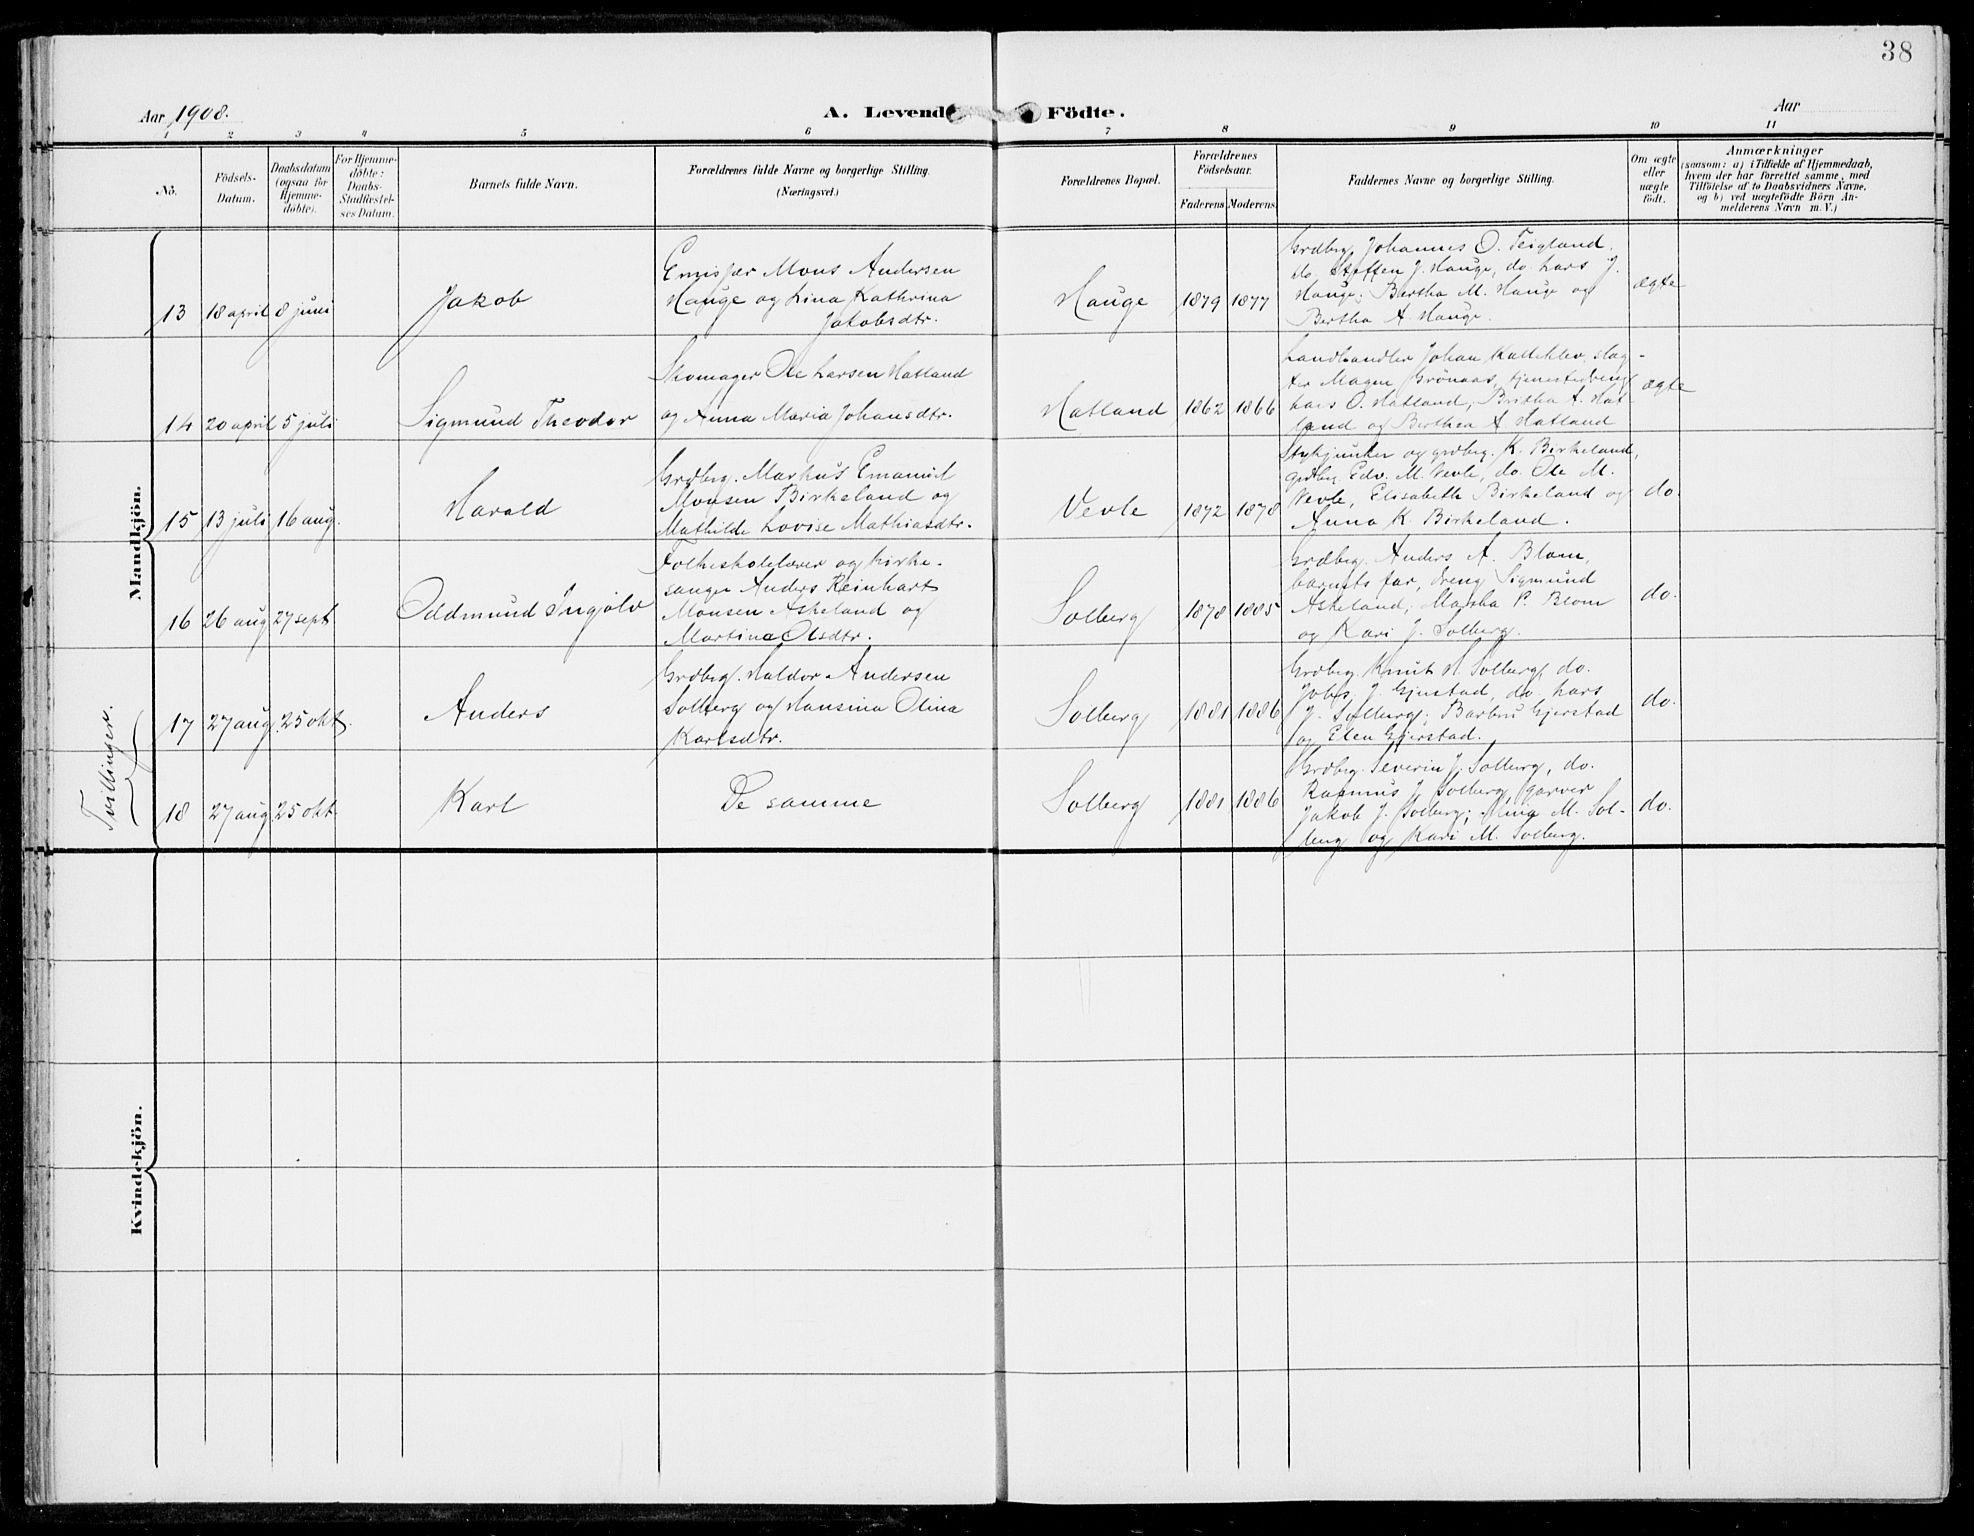 38
Aar 1908.
A. Levende
Födte.
Aar
1 2 3 4 5 6 7 8 9 10 11
No.
Födsels-
Datum.
Daabsdatum
(ogsaa for
Hjemme-
døbte).
For Hjemme-
døbte:
Daabs-
Stadfæstel-
ses Datum.
Barnets fulde Navn.
Forældrenes fulde Navne og borgerlige Stilling.
(Næringsvei.)
Forældrenes Bopæl.
Forældrenes
Födselsaar.
Faderens Moderens.
Faddernes Navne og borgerlige Stilling.
Om ægte
eller
uægte
födt.
Anmærkninger
(saasom: a) i Tilfælde af Hjemmedaab,
hvem der har forrettet samme, med
Tilföielse af to Daabsvidners Navne,
og b) ved uægtefödte Börn An-
melderens Navn m. V.)
Mandkjön.
13 18 april 8 juni
Jakob
Mons Andersen
Hauge og Lina Kathrina
Jakobsdtr.
Hauge 1879 1877
Grdbrg. Johannes O. Teigland,
do. Steffen J. Hauge, do. Lars J.
Hauge; Bertha M. Hauge og
Bertha A. Hauge.
ægte
14 20 april 5 juli
Sigmund Theodor
Skomager Ole Larsen Hatland
og Anna Maria Johansdtr.
Hatland 1862 1866
Landhandler Johan slag-
ter Magne Grönaas, tjenestedreng
Lars O. Hatland; Britha A. Hat
land og Berthea A Hatland
ægte
15 13 juli 16 aug.
Harald
Grdbrg. Markus Emanuel
Monsen Birkeland og
Mathilde Lovise Mathiasdtr.
Vevle 1872 1878
Stykjunker og grdbrg. K. Birkeland,
grdbrg. Edv. M. Vevle, do. Ole M.
Vevle, Elisabeth Birkeland og
Anna K. Birkeland.
do.
16 26 aug 27 sept.
Oddmund Ingjolv
Folkeskolelærer og kirke-
sanger Anders Reinhart
Monsen Askeland og
Martina Olsdtr.
Solberg 1878 1885
Grdbrg. Anders A. Blom,
barnets far, dreng Sigmund
Askeland; Martha P. Blom
og Kari J. Solberg.
do.
Tvillinger.
17 27 aug. 25 okt.
Anders
Grdbrg. Haldor Andersen
Solberg og Hansina Olina
Karlsdtr.
Solberg 1881 1886
Grdbrg. Knut H. Solberg, do.
J. Gjerstad, do. Lars
J. Solberg; Barbru Gjerstad
og Elen Gjerstad.
do.
18 27 aug. 25 okt.
Karl
De samme
Solberg 1881 1886
Grdbrg. Severin J. Solberg, do.
Rasmus J. Solberg, garver
Jakob J. Solberg; M. Sol-
berg og Kari M. Solberg.
do.
Kvindekjön.